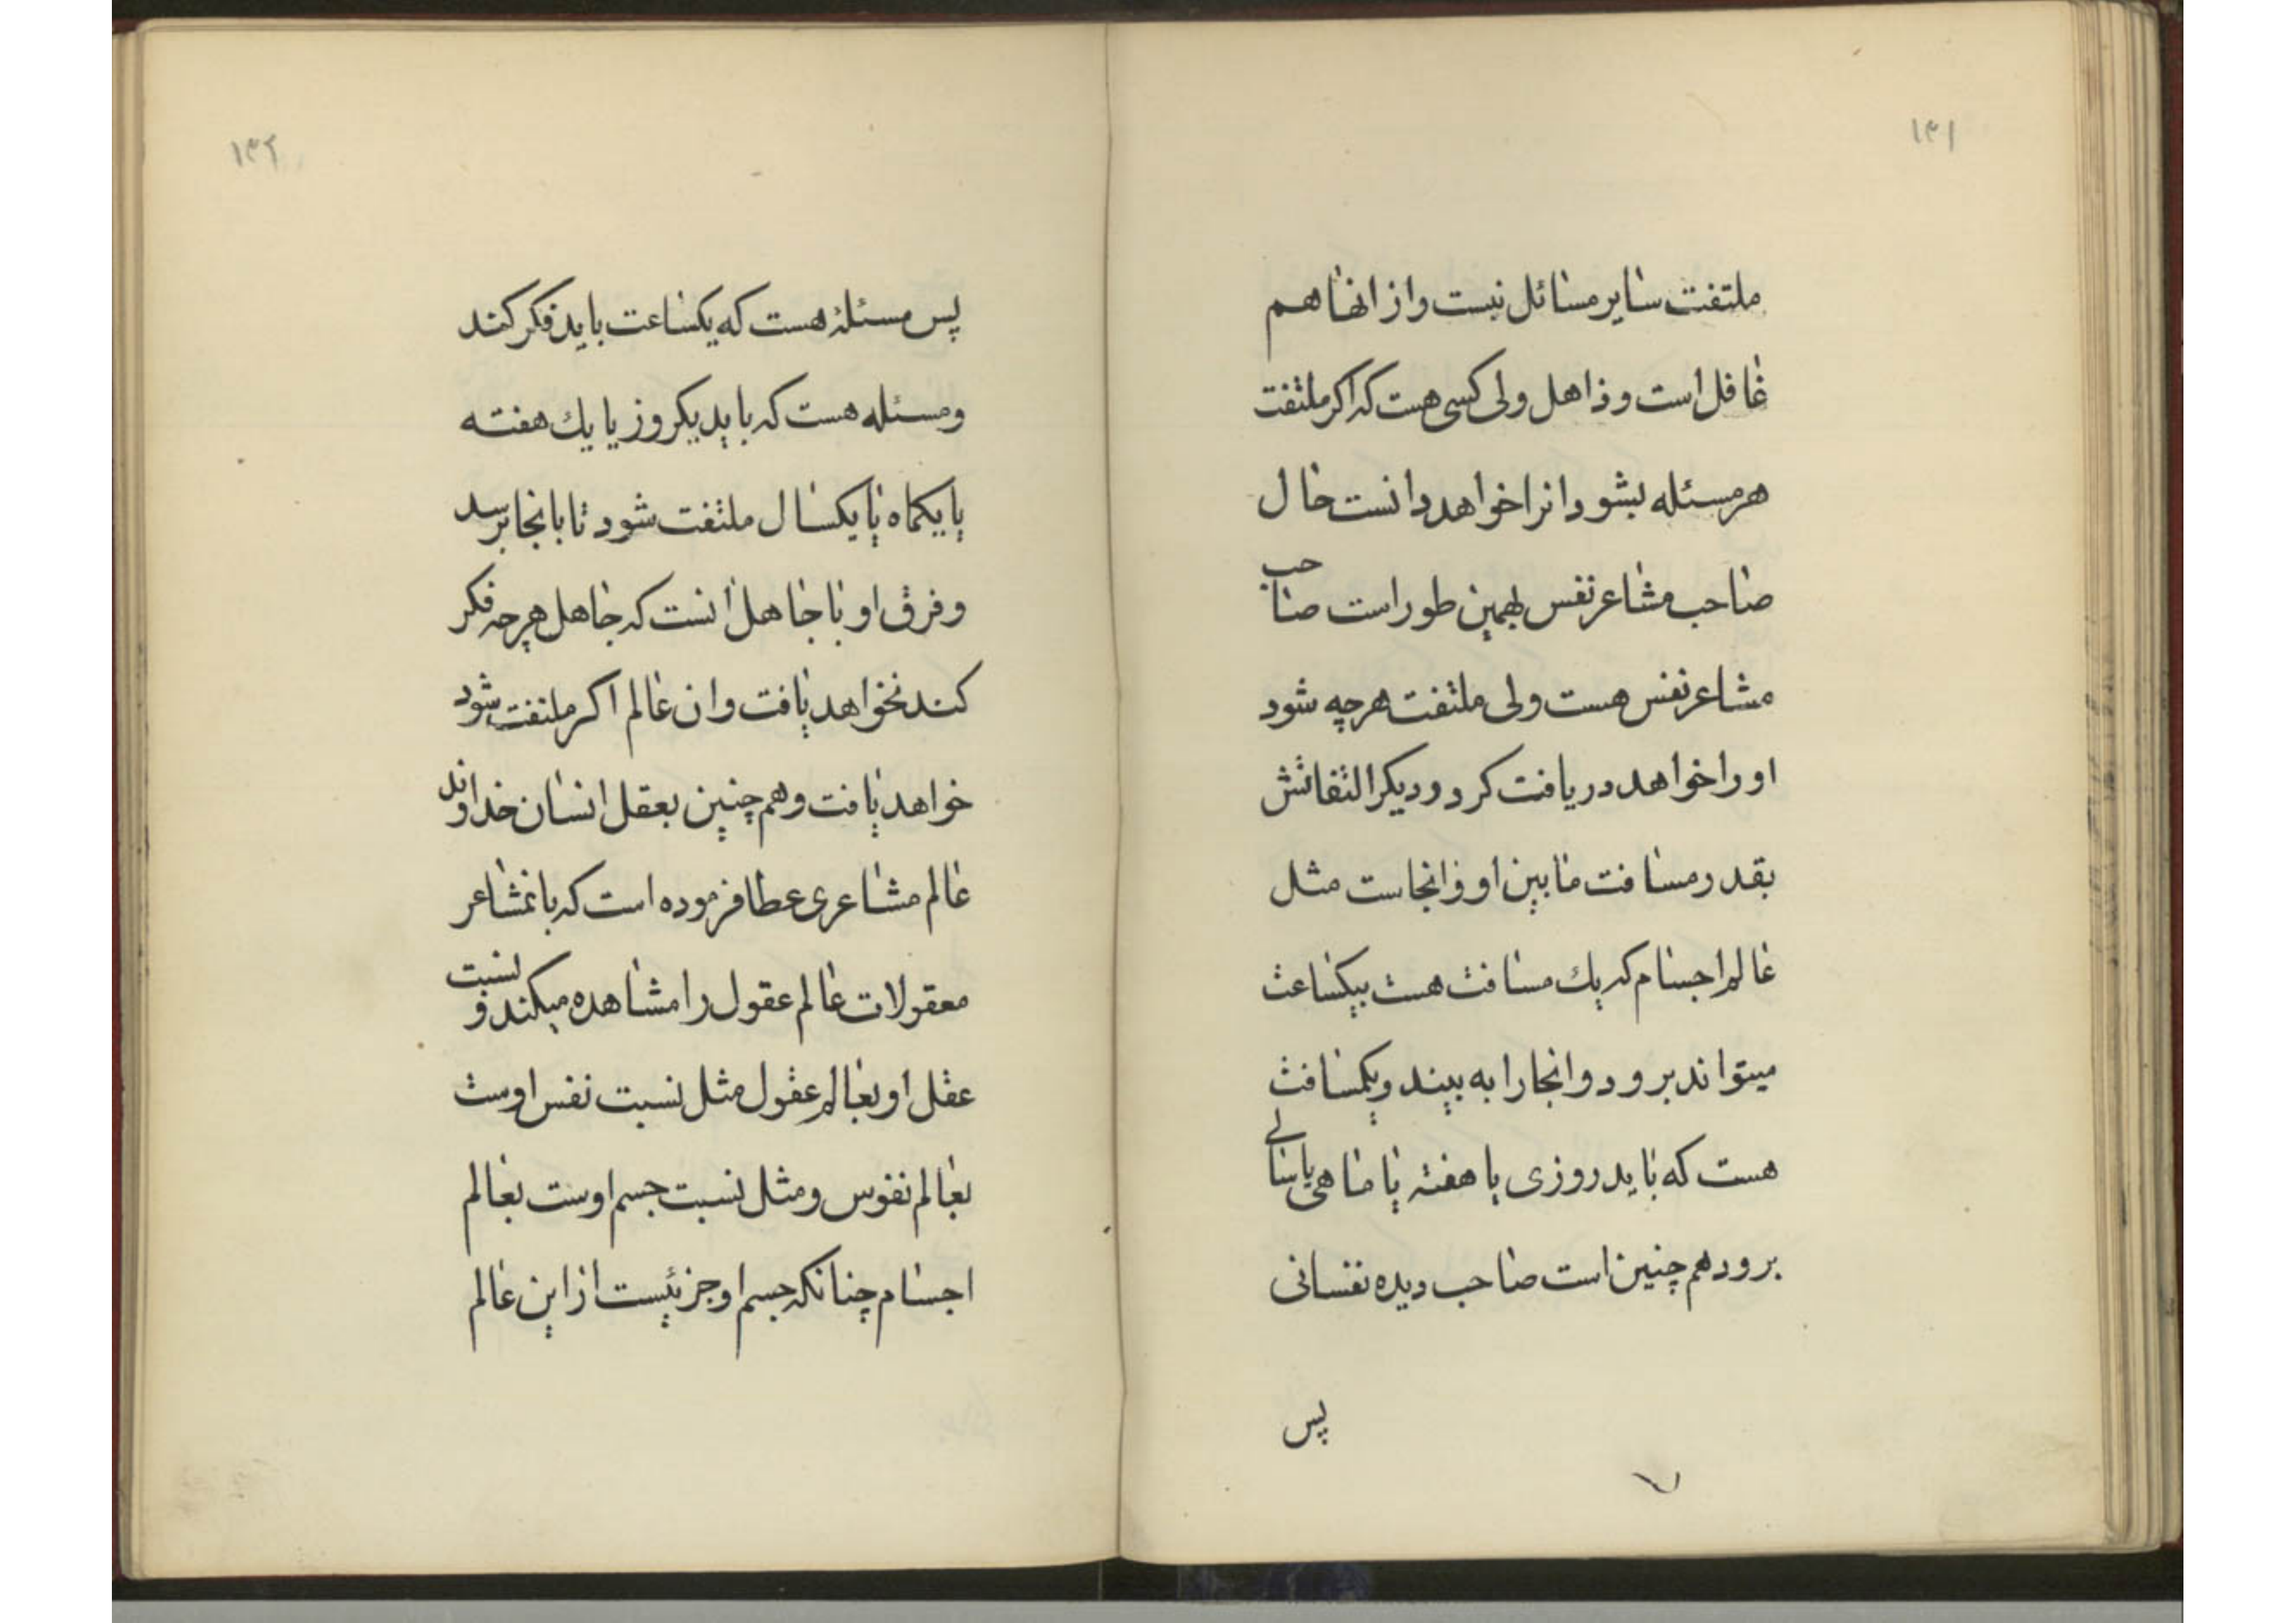 ۱۳۱
ملتفت سایر مسائل نیست و از انها هم
غافل است و ذاهل ولی کسی هست که اکر ملتفت
هر مسئله بشود انرا خواهد دانست حال
صاحب مشاعر نفس بهمین طور است صاحب
مشاعر نفس هست ولی ملتفت هرچه شود
او را خواهد دریافت کرد و دیکر التفاتش
بقدر مسافت مابین او و انجاست مثل
عالم اجسام که یك مسافت هست بیکساعت
میتواند برود و انجا را به بیند و یکمسافت
هست که باید روزی یا هفتۀ یا ماهی یا سالی
برود هم چنین است صاحب دیده نفسانی
پس
۷
۱۳۲
پس مسئلۀ هست که یکساعت باید فکر کند
و مسئله هست که باید یکروز یا یك هفته
یا یکماه یا یکسال ملتفت شود تا بانجا برسد
و فرق او با جاهل انست که جاهل هرچه فکر
کند نخواهد یافت و ان عالم اکر ملتفت شود
خواهد یافت و هم چنین بعقل انسان خداوند
عالم مشاعری عطا فرموده است که بانمشاعر
معقولات عالم عقول را مشاهده میکند و نسبت
عقل او بعالم عقول مثل نسبت نفس اوست
بعالم نفوس و مثل نسبت جسم اوست بعالم
اجسام چنانکه جسم او جزئیست از این عالم